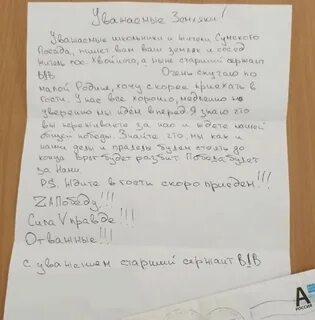 Уважаемые Земляки!
Уважаемые школьники и жители Сумского
Посада, пишет вам ваш земляк и сосед
житель пос. Хвойного, а ныне старший сержант
В1В Очень скучаю по
малой Родине, хочу скорее приехать в
гости. У нас все хорошо, медленно но
уверенно мы идём вперед. Я знаю что
вы переживаете за нас и ждете нашей
общей победы. Знайте что, мы как и
наши деды и прадеды будем стоять до
конца Враг будет разбит Победа будет
за Нами.
P.S. Ждите в гости скоро приедем!!!
ZаПобеду!!!
Сила V правде!!!
Отважные!!!
С уважением старший сержант В1В
А
РОССИЯ